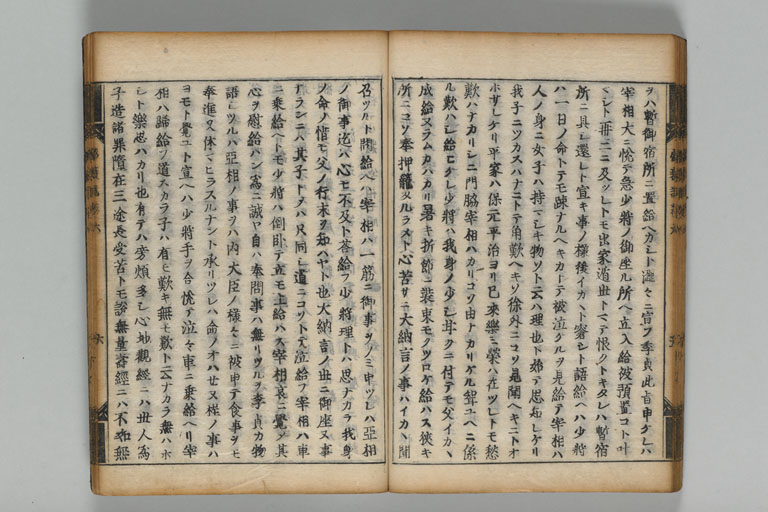 ヲハ暫御宿所ニ置給ヘカシト泣々ニ宣フ季貞此旨申ケレハ
宰相大ニ悦テ急少将ノ御座ル所ヘ立入給彼預置コト叶
マシト再三ニ及ツレトモ出家遁世トマテ恨クトキタレハ暫宿
所ニ具シ還レト宣キ事ノ様後イカヽト密シト語給ヘハ少将
ハ一日ノ命トテモ疎ナルヘキカトテ被泣ケルヲ見給テ宰相ハ
人ノ身ニ女子ハ持マシキ物ソト云ハ理也ト始テ思知レケリ
我子ニツカスハナニトテ角歎ヘキソ徐外ニコソ見聞ヘキニトオ
ホサレケリ平家ハ保元平治ヨリ已来樂ミ榮ハ在ツレトモ愁
歎ハナカリシニ門脇宰相ハカリコソ由ナカリケル聟ユヘニ係
ル歎ハシ給ヒケレ少将ハ我身ノ少シ甘クニ付テモ父イカヽ
成給ヌラムカハカリ暑キ折節ニ裝束モクツロケ給ハス狭キ
所ニコソ奉押籠タルラメト心苦サニ大納言ノ事ハイカヽ聞
召ツルト問給ヘハ宰相ハ一筋ニ御事ヲノミ申ツレハ亞相
ノ御事迄ハ心モ不及ト答給フ少将理トハ思ナカラ我身
ノ命ノ惜モ父ノ行末ヲ知ハヤト也大納言ノ世ニ御座ヌ事
ナランニハ其子トメハ只同シ道ニコソトテ泣給フ宰相ハ車
ニ乗給ヘトモ少将ハ倒臥テ立モ上給ハス宰相哀ニ覺ソ其
心ヲ慰給ハン為ニ誠ヤ自ハ奉問事ハ無リツルヲ季貞カ物
語シツルハ亞相ノ事ヲハ内大臣ノ様々ニ被申テ食事ヲモ
奉進又休マヒラスルナント承リツレハ命ノオハセヌ程ノ事ハ
ヨモト覺ユト宣ヘハ少将手ヲ合悦テ泣々車ニ乗給ヘリ宰
相ハ歸給フ道スカラ子ハ有モ歎キ無モ歎ト云ナカラ無ハホ
シト樂思ハカリ也有テハ旁煩多シ心地觀經ニハ世人為
子造諸罪隨在三途長受苦トモ説無量壽經ニハ不如無